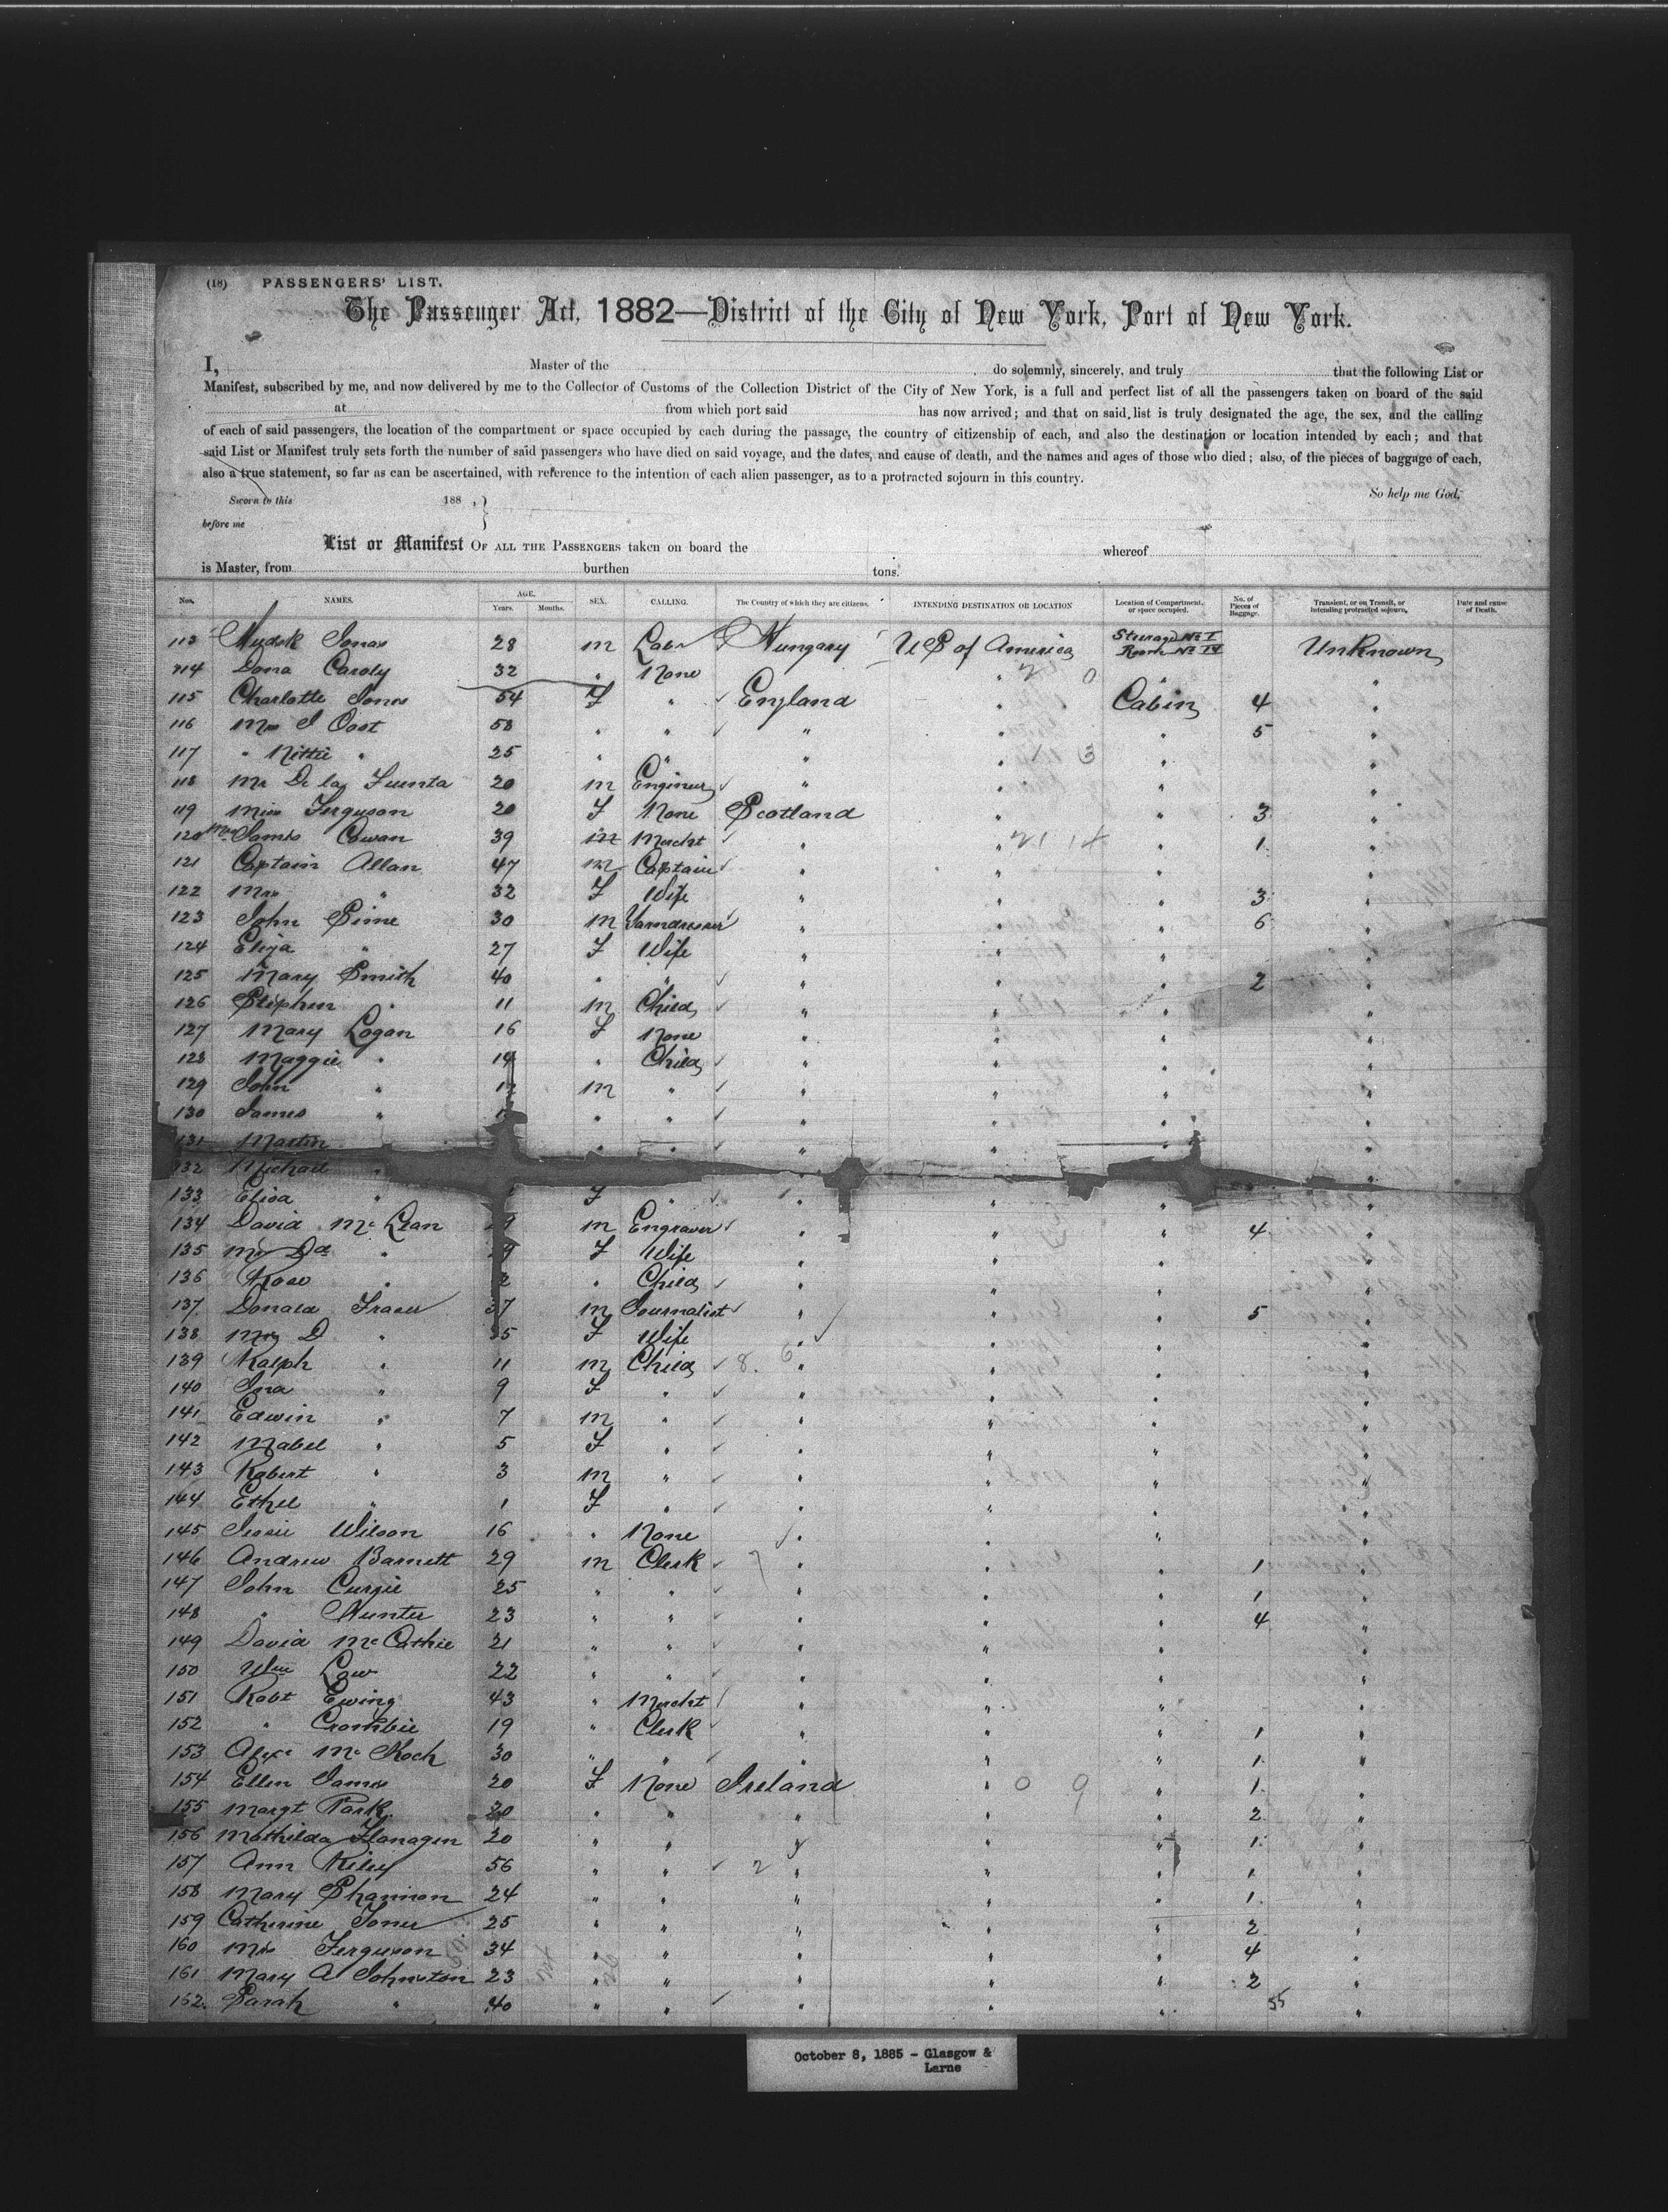 (18) PASSENGERS' LIST.
The Passenger Act, 1882—District of the City of New York, Port of New York.
I, Master of the do solemnly, sincerely, and truly that the following List or
Manifest, subscribed by me, and now delivered by me to the Collector of Customs of the Collection District of the City of New York, is a full and perfect list of all the passengers taken on board of the said
at from which port said has now arrived; and that on said list is truly designated the age, the sex, and the calling
of each of said passengers, the location of the compartment or space occupied by each during the passage, the country of citizenship of each, and also the destination or location intended by each; and that
said List or Manifest truly sets forth the number of said passengers who have died on said voyage, and the dates, and cause of death, and the names and ages of those who died; also, of the pieces of baggage of each,
also a true statement, so far as can be ascertained, with reference to the intention of each alien passenger, as to a protracted sojourn in this country.
Sworn to this 188 , } So help me God,
before me
List or Manifest OF ALL THE PASSENGERS taken on board the whereof
is Master, from burthen tons.
Nos. NAMES. AGE. Years. Months. SEX. CALLING. The Country of which they are citizens. INTENDING DESTINATION OR LOCATION Location of Compartment, or space occupied. No. of Pieces of Baggage. Transient, or on Transit, or intending protracted sojourn. Date and cause of Death.
113 Jonas 28 m Labr Hungary US of America Steerage No I Room No IV Unknown
114 Dona Caroly 32 " None " " "
115 Charlotte Jones 54 F " England " Cabin 4 "
116 Mrs J Oost 58 " " " " " 5 "
117 " Nettie " 25 " " " " " "
118 Mr De la Fuenta 20 m Engineer " " " "
119 Miss Ferguson 20 F None Scotland " 3 "
120 James Cowan 39 m Mercht " " " 1 "
121 Captain Allan 47 m Captain " " " "
122 Mrs " 32 F Wife " " " 3 "
123 John Sime 30 m Yarndresser " " " 6 "
124 Eliza " 27 F Wife " " " "
125 Mary Smith 40 " " " " " 2 "
126 Stephen " 11 m Child " " " "
127 Mary Logan 16 F None " " " "
128 Maggie " 14 " Child " " " "
129 John " m " " " " "
130 James " " " " " " "
131 Martin " " " " " "
132 Michael "
133 Elisa " F " " " " "
134 David McLean m Engraver " " " 4 "
135 Mrs Dd " F Wife " " "
136 Rose " " Child " " " "
137 Donald Fraser 37 m Journalist " " " 5 "
138 Mrs D " 35 F Wife " " " "
139 Ralph " 11 m Child " " " "
140 " 9 F " " " " "
141 Edwin " 7 m " " " " "
142 Mabel " 5 F " " " " "
143 Robert " 3 m " " " " "
144 Ethel " 1 F " " " " "
145 Jessie Wilson 16 " None " " " "
146 Andrew Barnett 29 m Clerk " " " 1 "
147 John Curzie 25 " " " " " 1 "
148 " Hunter 23 " " " " " 4 "
149 David McCathie 21 " " " " " "
150 Wm Law 22 " " " " " "
151 Robt Ewing 43 " Mercht " " " "
152 " Crombie 19 " Clerk " " " 1 "
153 Alexr 30 " " " " " 1 "
154 Ellen James 20 F None Ireland " " 1 "
155 Margt Park 20 " " " " " 2 "
156 Mathilda Flanagen 20 " " " " " 1 "
157 Ann Riley 56 " " " " " 1 "
158 Mary Shannon 24 " " " " " 1 "
159 Catherine Toner 25 " " " " " 2 "
160 Mrs Ferguson 34 " " " " " 4 "
161 Mary A Johnston 23 " " " " " 2 "
162 Sarah " 40 " " " " " "
55
October 8, 1885 - Glasgow &
Larne